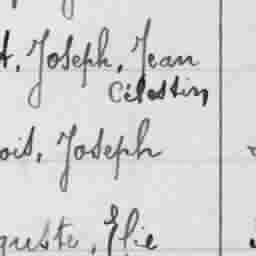 t, Joseph, Jean
Célestin
ois, Joseph
guste, Elie